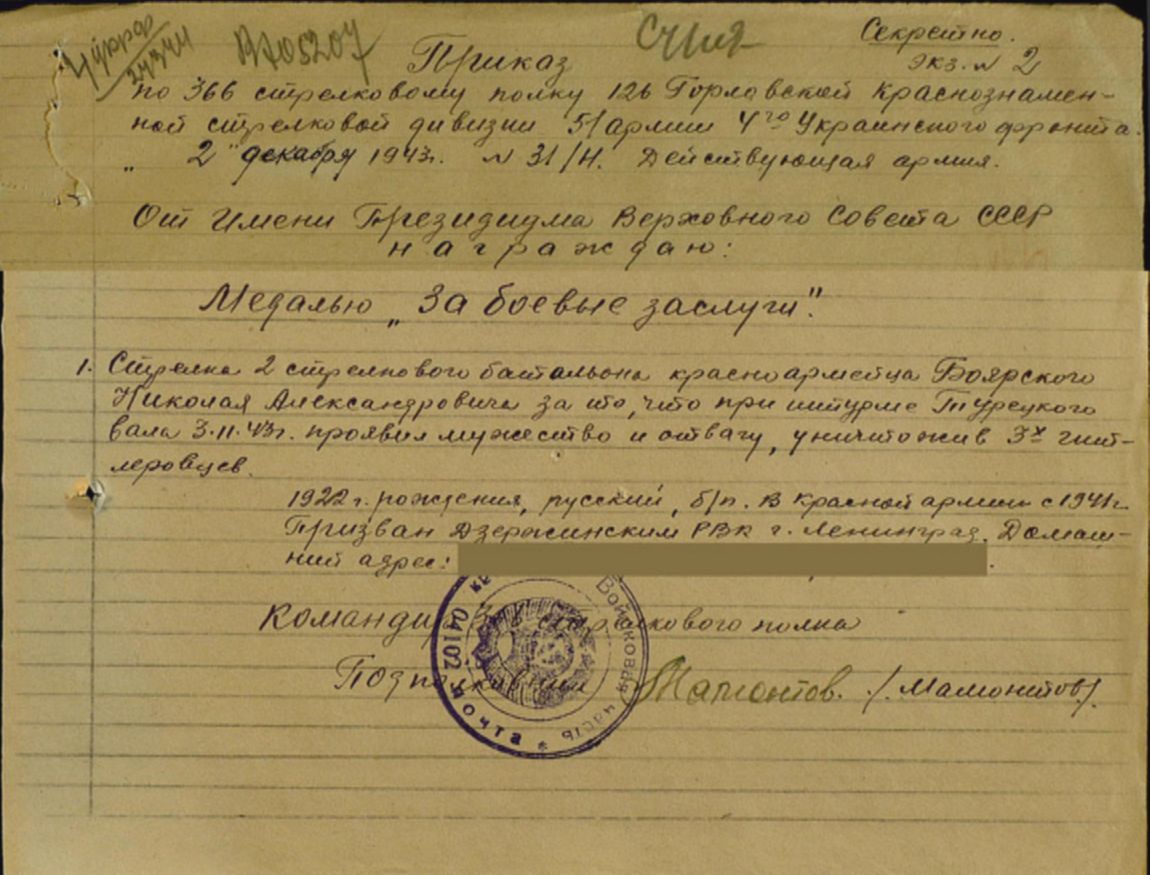 Секретно.
экз. N 2
4 Укр ф
Приказ
по 366 стрелковому полку 126 Горловской Краснознамен-
ной стрелковой дивизии 51 армии 4го Украинского фронта.
„ 2 " декабря 1943г. N 31/Н. Действующая армия.
От Имени Президиума Верховного Совета СССР
награждаю:
Медалью „За боевые заслуги".
1. Стрелка 2 стрелкового батальона красноармейца Боярского
Николая Александровича за то, что при штурме Турецкого
вала 3.11.43г. проявил мужество и отвагу, уничтожив 3х гит-
леровцев.
1922 г. рождения, русский, б/п. В Красной армии с 1941г.
Призван Дзержинским РВК г. Ленинград. Домаш-
ний адрес:
Командир 366 стрелкового полка
Подполковник Мамонтов. /Мамонтов/.
Войсковая часть
04102
почта *